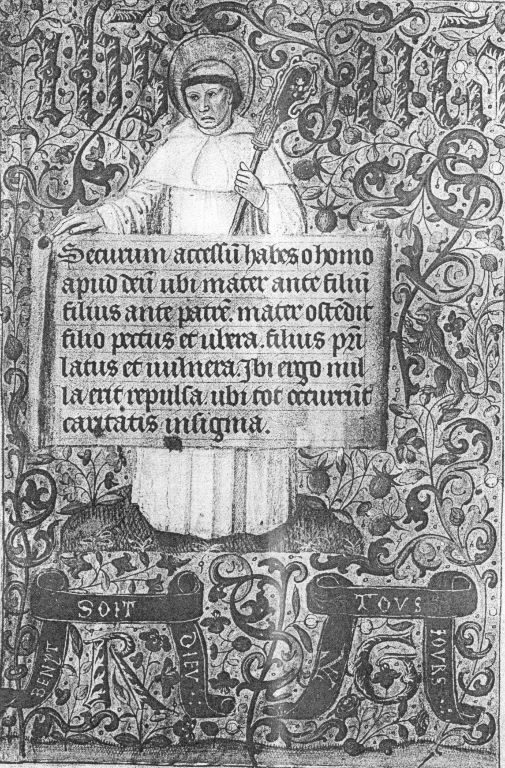 Ihs Ma
Securum accessū habes o homo
apud deū ubi mater ante filiū
filius ante patrē. mater ostēdit
filio pectus et ubera. filius pr̄i
latus et uulnera. Jbi ergo nul
la erit repulsa, ubi tot occurūt
caritatis insignia.
BENYT SOIT DIEV
TOVS IOVRS